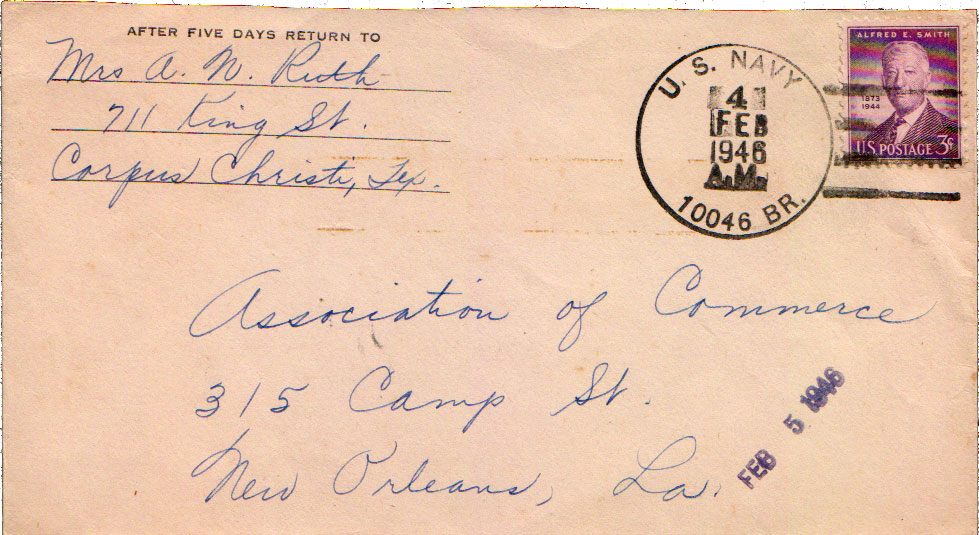 AFTER FIVE DAYS RETURN TO
Mrs A. N. Ruth
711 King St.
Corpus Christi, Tex.
U. S. NAVY
4
FEB
1946
A.M.
10046 BR.
ALFRED E. SMITH
1873
1944
U.S. POSTAGE 3¢
Association of Commerce
315 Camp St.
New Orleans, La.
FEB 5 1946